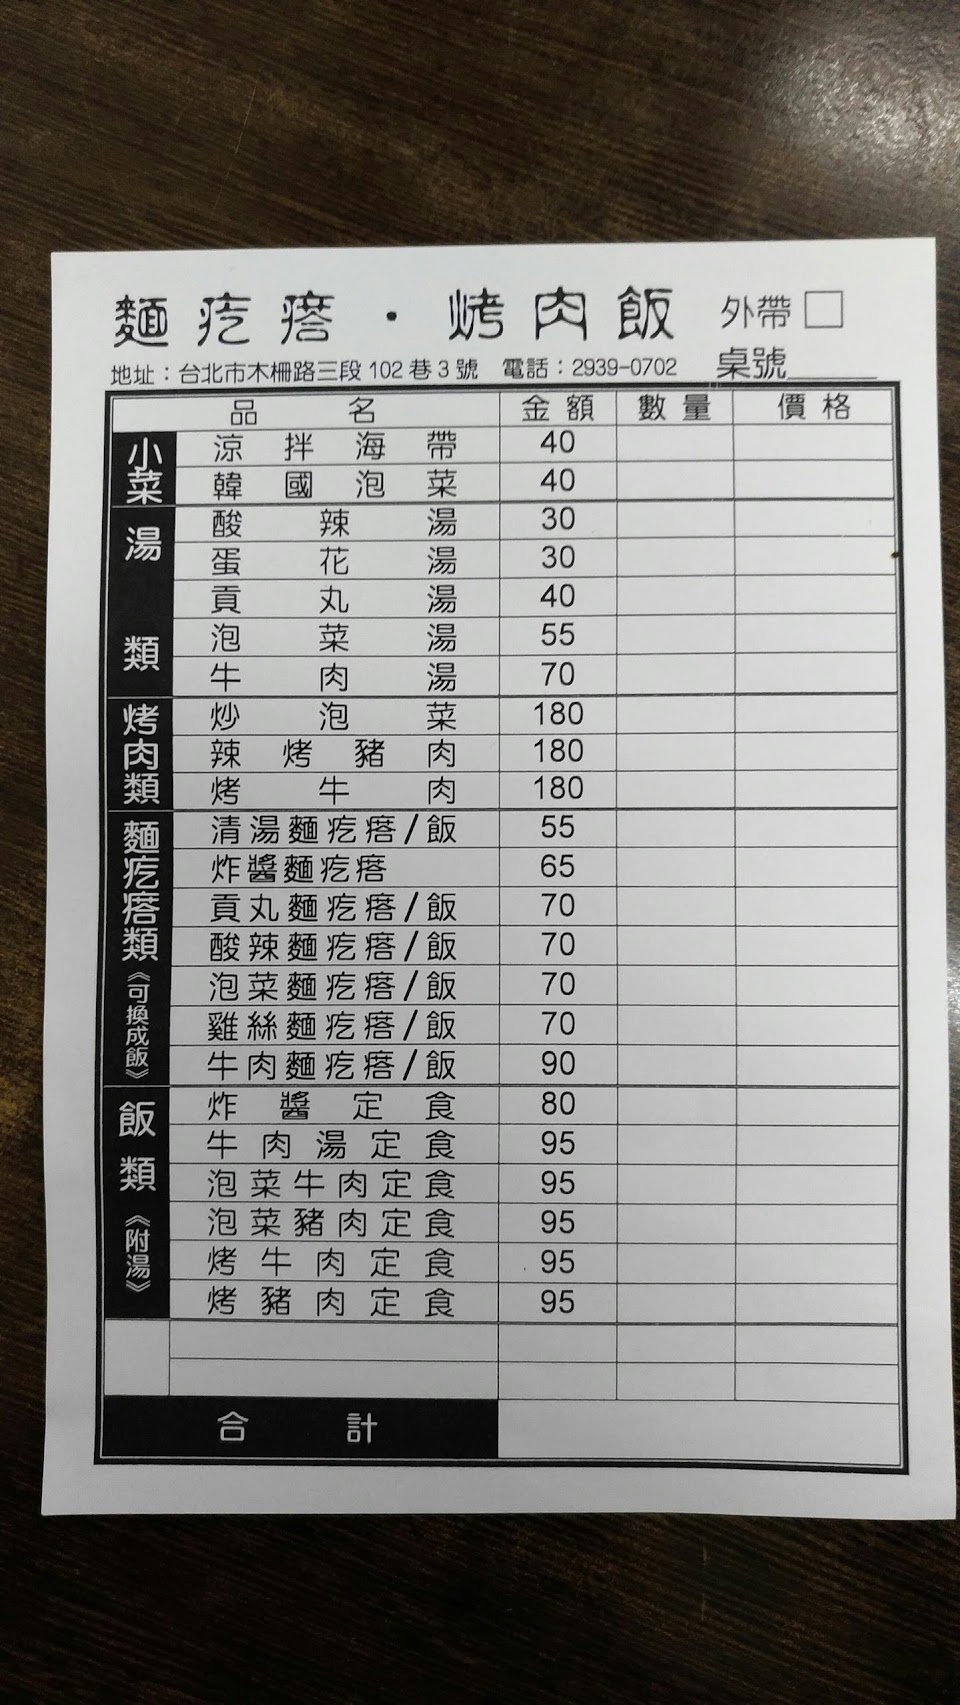 麵疙瘩・烤肉飯 外帶□
地址：台北市木柵路三段102巷3號 電話：2939-0702 桌號______
品名 金額 數量 價格
小菜
涼拌海帶 40
韓國泡菜 40
湯類
酸辣湯 30
蛋花湯 30
貢丸湯 40
泡菜湯 55
牛肉湯 70
烤肉類
炒泡菜 180
辣烤豬肉 180
烤牛肉 180
麵疙瘩類《可換成飯》
清湯麵疙瘩/飯 55
炸醬麵疙瘩 65
貢丸麵疙瘩/飯 70
酸辣麵疙瘩/飯 70
泡菜麵疙瘩/飯 70
雞絲麵疙瘩/飯 70
牛肉麵疙瘩/飯 90
飯類《附湯》
炸醬定食 80
牛肉湯定食 95
泡菜牛肉定食 95
泡菜豬肉定食 95
烤牛肉定食 95
烤豬肉定食 95
合計